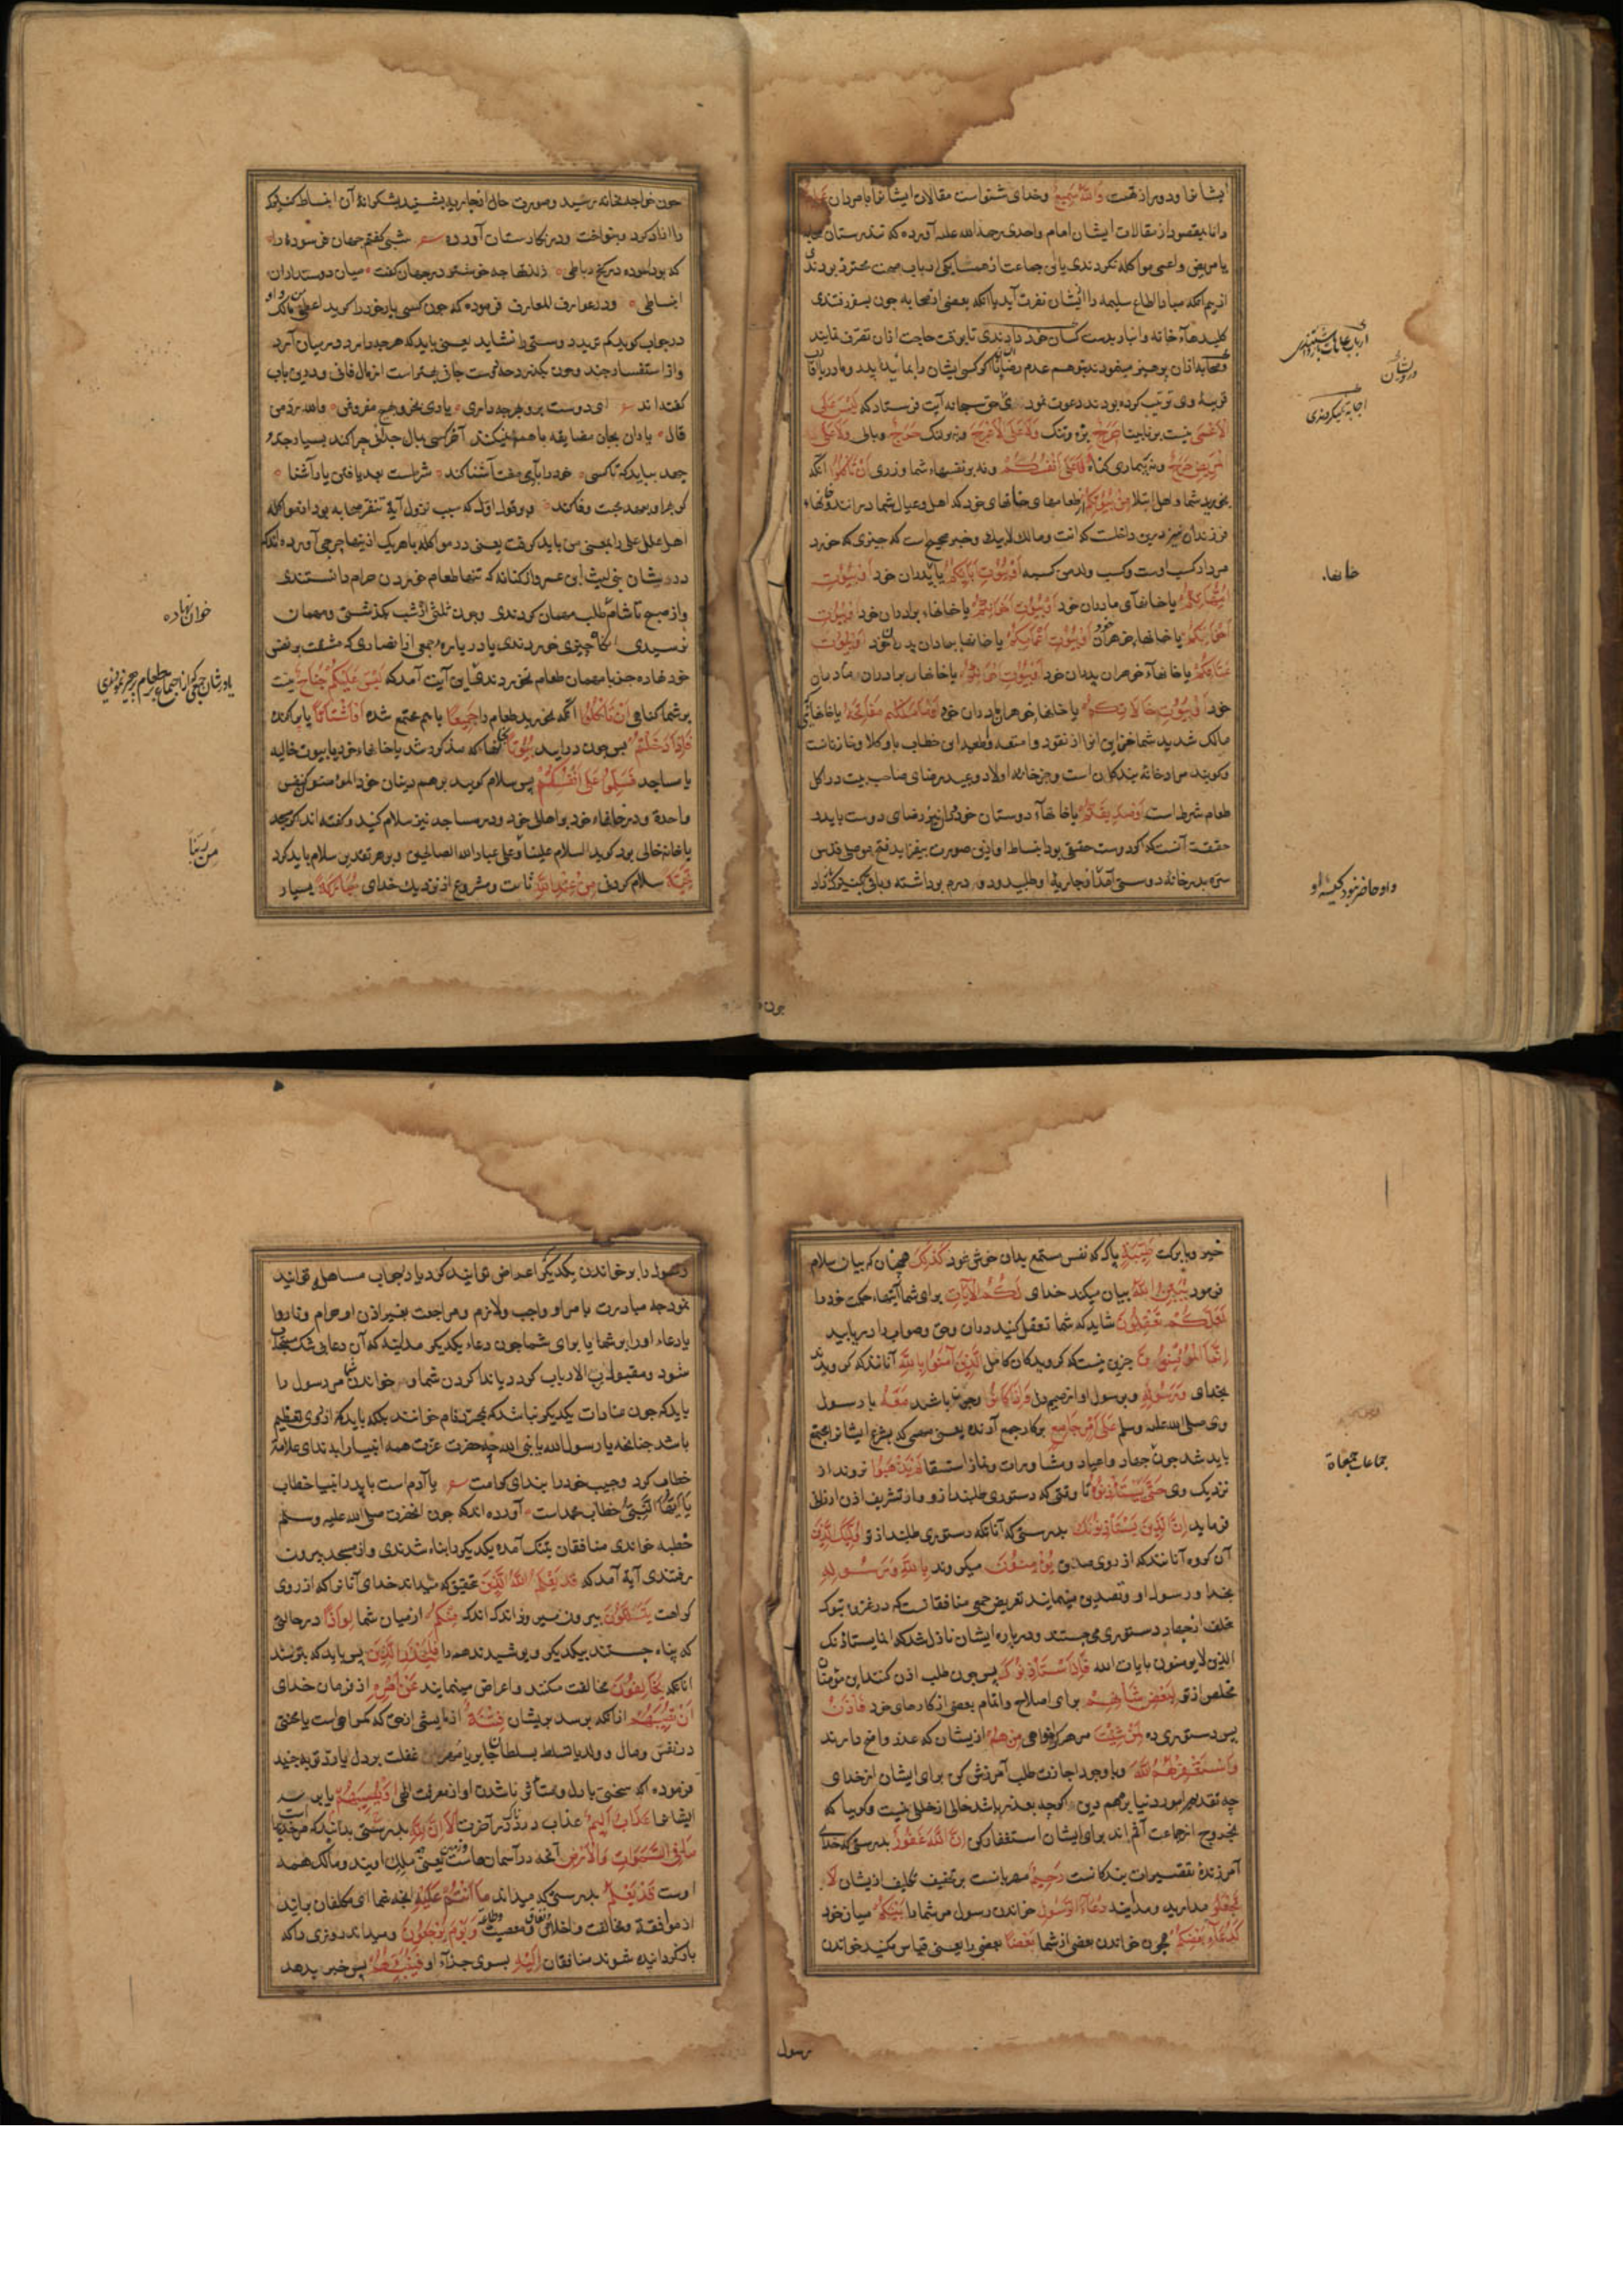 ایشانرا ودور از تهمت وَاللهُ سَمِیعٌ وخدای شنواست مقالات ایشانرا با مردان عَلِیمٌ
دانا بمقصود از مقالات ایشان امام واحدی رحمة الله علیه آورده که تندرستان صحابه
با مریض واعمی مواکله نکردندی یا این جماعت از همسایکی ارباب صحت محترز بودندی
از بیم آنکه مبادا طباع سلیمه را از ایشان نفرت آید یا آنکه بعضی از صحابه چون بسفر رفتندی
کلیدهاء خانه وانبار بدست کسان خود دادندی تا بوقت حاجت ازان تصرف نمایند
قریبهٔ وی ترتیب کرده بودند دعوت نمود حق سبحانه آیت فرستاد که لَیْسَ عَلَی
الْاَعْمَی نیست بر نابینا حَرَجٌ بزه وتنک وَلَا عَلَی الْاَعْرَجِ ونه بر لنک حَرَجٌ وبالی وَلَا عَلَی
الْمَرِیضِ حَرَجٌ ونه بر بیماری کناه وَلَا عَلَی اَنْفُسِکُمْ ونه بر نفسهاء شما وزری اَنْ تَاْکُلُوا آنکه
بخورید شما واهل ابتلا مِنْ بُیُوتِکُمْ از طعامهای خانهای خود که اهل وعیال شما درانند وخانهاء
فرزندان نیز درین داخلست که انت ومالک لابیک وخبر صحیح است که چیزی که خورد
مرد از کسب اوست وکسب ولد من کسبه اَوْ بُیُوتِ آبَائِکُمْ یا پدران خود اَوْ بُیُوتِ
اُمَّهَاتِکُمْ یا خانهآی مادران خود اَوْ بُیُوتِ اِخْوَانِکُمْ یا خانهاء برادران خود اَوْ بُیُوتِ
اَخَوَاتِکُمْ یا خانهاء خواهران خود اَوْ بُیُوتِ اَعْمَامِکُمْ یا خانها برادران پدران خود اَوْ بُیُوتِ
عَمَّاتِکُمْ یا خانهآء خواهران پدران خود اَوْ بُیُوتِ اَخْوَالِکُمْ یا خانهاء برادران مادران
خود اَوْ بُیُوتِ خَالَاتِکُمْ یا خانهاء خواهران مادران خود اَوْ مَا مَلَکْتُمْ مَفَاتِحَهُ یا خانهائی که
مالک شدید شما خزاین انرا از نقود وامتعه واطعمه این خطاب با وکلا وخازنانست
وکویند مراد خانه بندکان است وجز خانه اولاد وعبید رضای صاحب بیت در اکل
طعام شرط است اَوْ صَدِیقِکُمْ یا خانهآء دوستان خود که ازان نیز رضای دوست باید
حقیقت آنست که اکر دوست حقیقی بود انبساط او ازین صورت بیفزاید فتح موصلی قدس
سره بدر خانه دوستی آمد از جاریهٔ او طلبید ودو درم برداشته وباقی بکنیزک داد
ارباب عاهات باز داشتندی
درویشان
اجابت نمیکردندی
خانهاء
واو حاضر نبود کیسه او
چون خواجه بخانه رسید وصورت حال از جاریه بشنید بشکرانهٔ آن انبساط کنیزک
را ازاد کرد وبنواخت ودر نکارستان آورده شعر شبی کفتم جهان فرسودهٔ را
که بود اسوده در کنج رباطی زلذتها چه خوشتر در جهان کفت میان دوستداران
انبساطی ودر عوارف المعارف فرموده که چون کسی یار خود را کوید اعطنی من مالک
در جواب کوید کم ترید دوستی را نشاید یعنی باید که هر چه دارد در میان آرد
واز استفسار چند وچون بکذرد چه دوست جانی بهتر است از مال فانی ودرین باب
کفته اند شعر ای دوست برو بهر چه داری یاری بخر وبهیچ مفروش ولله در من
قال یاران بجان مضایقه با هم نمیکنند آخر کسی بمال جدائی چرا کند بسیار جد و
جهد بباید که تا کسی خود را بآدمی صفت آشنا کند شرطست بعد یافتن یار آشنا
کو جمله در صدد مهر و وفا کند
اهل علل علی را بمعنی من باید کرفت یعنی در مواکله با هر یک ازینها حرجی آورده اندکه
درویشان بنی لیث ابن عمرو از کنانه که تنها طعام خوردن حرام دانستندی
واز صبح تا شام طلب مهمان کردندی وچون ثلثی از شب بکذشتی ومهمان
نرسیدی انکاه چیزی خوردندی یا در باره جمعی از انصاری که مشقت بر نفس
خود نهاده جز با مهمان طعام نخوردندی این آیت آمد که لَیْسَ عَلَیْکُمْ جُنَاحٌ نیست
بر شما کناهی اَنْ تَاْکُلُوا آنکه بخورید طعام را جَمِیعًا با هم مجتمع شده اَوْ اَشْتَاتًا یا پراکنده
فَاِذَا دَخَلْتُمْ پس چون درایید بُیُوتًا بخانها که مذکور شد یا خانهاء خود یا بیوت خالیه
یا مساجد فَسَلِّمُوا عَلَی اَنْفُسِکُمْ پس سلام کویید بر هم دینان خود المؤمنون کنفس
واحدة ودر خانهاء خود بر اهل خود ودر مساجد نیز سلام کنید وکفته اند اکر مسجد
یا خانه خالی بود کوید السلام علینا وعلی عباد الله الصالحین وبهر تقدیر سلام باید کرد
تَحِیَّةً سلام کردنی مِنْ عِنْدِ اللهِ ثابت ومشروع از نزدیک خدای مُبَارَکَةً بسیار
خوان نهاده
یا درشان جمعی که از اجتماع بر طعام تحرج نمودندی
من ربنا
چون
خیر وبا برکت طَیِّبَةً پاک که نفس مستمع بدان خوش شود کَذَلِکَ همچنان که بیان سلام
فرمود یُبَیِّنُ اللهُ بیان میکند خدای لَکُمُ الْآیَاتِ برای شما آیتهاء حکمت خود را
لَعَلَّکُمْ تَعْقِلُونَ شاید که شما تعقل کنید دران وحق وصواب را دریابید
اِنَّمَا الْمُؤْمِنُونَ جزین نیست که کرویدکان کامل الَّذِینَ آمَنُوا بِاللهِ آنانند که کرویدند
بخدای وَرَسُولِهِ وبرسول او از صمیم دل وَاِذَا کَانُوا وچون باشند مَعَهُ با رسول
وی صلی الله علیه وسلم عَلَی اَمْرٍ جَامِعٍ بر کار جمع آرنده یعنی مهمی که بشرع ایشانرا مجتمع
باید شد چون جهاد واعیاد ومشاورات ونماز استسقا لَمْ یَذْهَبُوا نروند از
نزدیک وی حَتَّی یَسْتَاْذِنُوهُ تا وقتی که دستوری طلبند ازو واو تشریف اذن ارزانی
فرماید اِنَّ الَّذِینَ یَسْتَاْذِنُونَکَ بدرستی که آنانکه دستوری طلبند از تو اُولَئِکَ الَّذِینَ
آن کروه آنانند که از روی صدق یُؤْمِنُونَ میکروند بِاللهِ وَرَسُولِهِ
بخدا ورسول او وتصدیق مینمایند تعریض جمعی منافقانست که در غزوه تبوک
تخلف از جهاد دستوری می جستند ودر باره ایشان نازل شد که انما یستاذنک
الذین لا یومنون بایات الله فَاِذَا اسْتَاْذَنُوکَ پس چون طلب اذن کنند این مؤمنان
مخلص از تو لِبَعْضِ شَاْنِهِمْ برای اصلاح واتمام بعضی از کارهای خود فَاْذَنْ
پس دستوری ده لِمَنْ شِئْتَ مر هر کرا خواهی مِنْهُمْ ازیشان که عذر واضح دارند
وَاسْتَغْفِرْ لَهُمُ اللهَ وبا وجود اجازت طلب آمرزش کن برای ایشان از خدای
چه تقدیم امور دنیا بر مهم دین اکرچه بعذر باشد خالی از خللی نیست وکوییا که
بخروج از جماعت آثم اند برای ایشان استغفار کن اِنَّ اللهَ غَفُورٌ بدرستی که خدای
آمرزندهٔ تقصیرات بندکانست رَحِیمٌ مهربانست بر تخفیف تکلیف ازیشان لَا
تَجْعَلُوا مدارید ومدانید دُعَاءَ الرَّسُولِ خواندن رسول مر شما را بَیْنَکُمْ میان خود
کَدُعَاءِ بَعْضِکُمْ همچون خواندن بعضی از شما بَعْضًا بعضی را یعنی قیاس مکنید خواندن
جماعات جمعات
رسول
رسول را بر خواندن یکدیکر اعراض توانید کرد یا در جواب مساهله توانید
نمود چه مبادرت بامر او واجب ولازم ومراجعت بغیر اذن او حرام وناروا
یا دعاء او را بر شما یا برای شما چون دعاء یکدیکر مدانید که آن دعا بی شک مستجاب
شود ومقبول رب الارباب کردد یا ندا کردن شما وخواندن شما مر رسول را
باید که چون منادات یکدیکر نباشد که بمجرد نام خوانند بلکه باید که از روی تعظیم
باشد چنانچه یا رسول الله یا نبی الله چه حضرت عزت همه انبیا را بندای علامت
خطاب کرد وحبیب خود را بندای کرامت شعر یا آدم است با پدر انبیا خطاب
یَا اَیُّهَا النَّبِیُّ خطاب محمد است آورده اند که چون انحضرت صلی الله علیه وسلم
خطبه خواندی منافقان بتنک آمده بیکدیکر پناه شدندی واز مسجد بیرون
رفتندی آیة آمد که قَدْ یَعْلَمُ اللهُ الَّذِینَ بتحقیق که میداند خدای آنانرا که از روی
کراهت یَتَسَلَّلُونَ بیرون میروند اندک اندک مِنْکُمْ از میان شما لِوَاذًا در حالتی
که پناه جستند بیکدیکر وپوشیدند خود را فَلْیَحْذَرِ الَّذِینَ پس باید که بترسند
آنانکه یُخَالِفُونَ مخالفت میکنند واعراض مینمایند عَنْ اَمْرِهِ از فرمان خدای
اَنْ تُصِیبَهُمْ از آنکه برسد بریشان فِتْنَةٌ
در نفس ومال وولد یا تسلط سلطان جابر غفلت بر دل یا رد توبه جنید
فرموده که سختی با دل ومتأثر ناشدن او از معرفت الهی اَوْ یُصِیبَهُمْ یا برسد
ایشانرا عَذَابٌ اَلِیمٌ عذاب دردناک در آخرت اَلَا اِنَّ لِلهِ بدرستی بدانید که مر خدایراست
مَا فِی السَّمَوَاتِ وَالْاَرْضِ آنچه در آسمانهاست وزمین یعنی همه ملک اویند ومالک همه
اوست قَدْ یَعْلَمُ بدرستی که میداند مَا اَنْتُمْ عَلَیْهِ آنچه شما ای مکلفان برآنید
از موافقت ومخالفت واخلاص ونفاق ومعصیت وطاعت وَیَوْمَ یُرْجَعُونَ ومیداند روزی را که
باز کردانیده شوند منافقان اِلَیْهِ بسوی جزاء او فَیُنَبِّئُهُمْ پس خبر بدهد